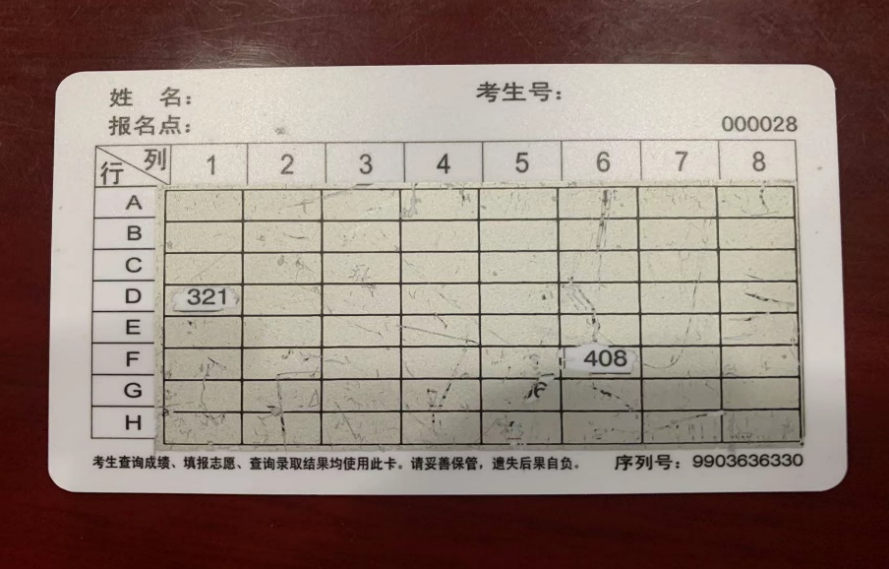 姓 名：
考生号：
报名点：
000028
行 列 1 2 3 4 5 6 7 8
A
B
C
D 321
E
F 408
G
H
考生查询成绩、填报志愿、查询录取结果均使用此卡。请妥善保管，遗失后果自负。
序列号：9903636330